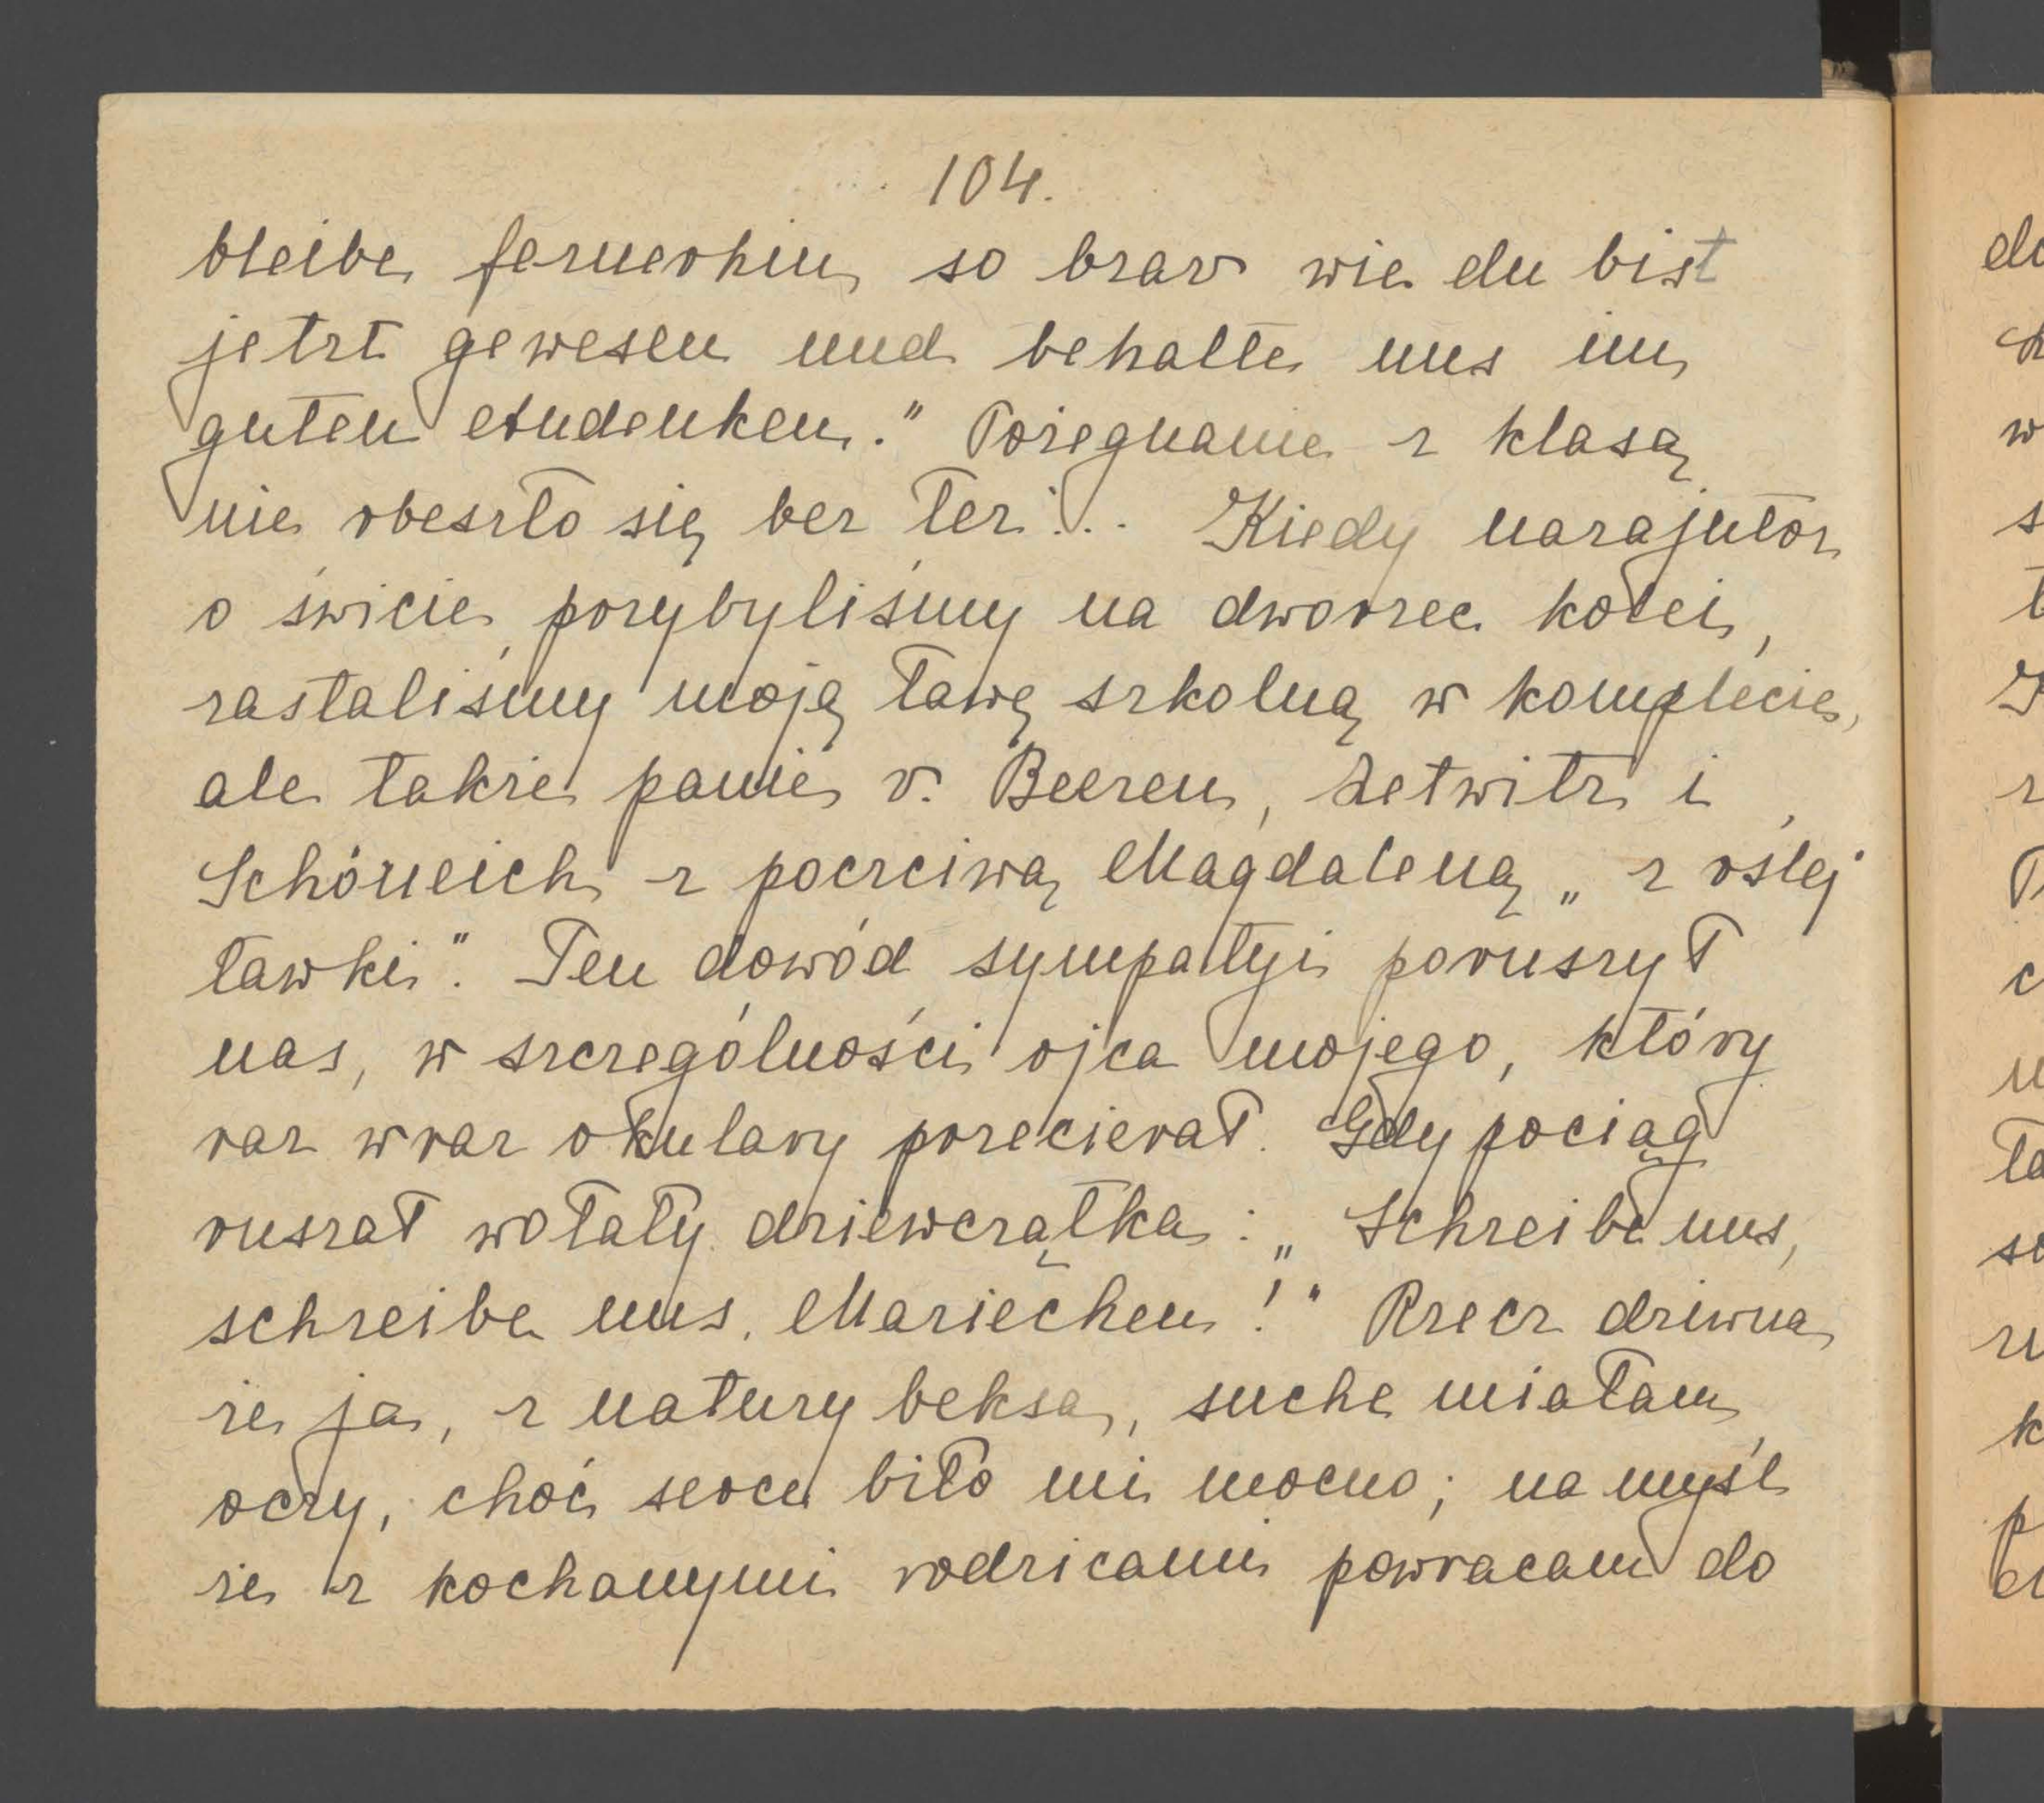 104.
bleibe fernerhin so brav wie du bist
jetzt gewesen und behalte uns im
guten Andenken." Pożegnanie z klasą
nie obeszło się bez łez!.. Kiedy nazajutrz
o świcie przybyliśmy na dworzec kolei,
zastaliśmy moją ławę szkolną w komplecie,
ale także panie v. Beeren, Zetwitz i
Schöneich z poczciwą Magdaleną „z oślej
ławki". Ten dowód sympatyi poruszył
nas, w szczególności ojca mojego, który
raz wraz okulary przecierał. Gdy pociąg
ruszał wołały dziewczątka: „Schreibe uns,
schreibe uns, Mariechen!" Rzecz dziwna
że ja, z natury beksa, suche miałam
oczy, choć serce biło mi mocno; na myśl
że z kochanymi rodzicami powracam do